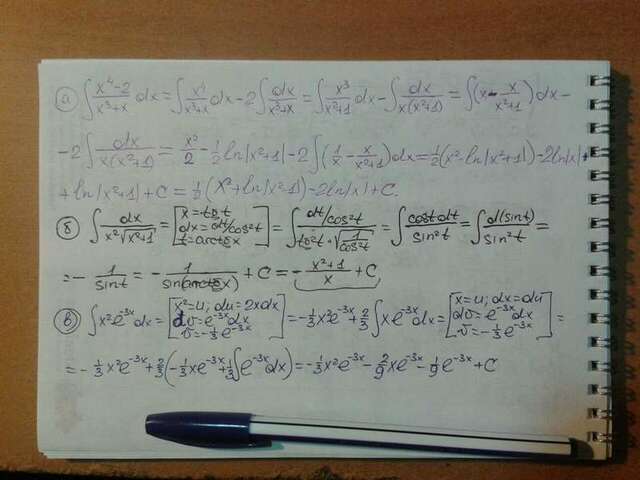 а) ∫ (x⁴-2)/(x³+x) dx = ∫ x⁴/(x³+x) dx - 2∫ dx/(x³+x) = ∫ x³/(x²+1) dx - ∫ dx/(x(x²+1)) = ∫(x - x/(x²+1))dx -
- 2∫ dx/(x(x²+1)) = x²/2 - 1/2 ln|x²+1| - 2∫(1/x - x/(x²+1))dx = 1/2(x² - ln|x²+1|) - 2ln|x| +
+ ln|x²+1| + C = 1/2(x² + ln|x²+1|) - 2ln|x| + C.
б) ∫ dx/(x²√(x²+1)) = [x = tg t; dx = dt/cos²t; t = arctg x] = ∫ (dt/cos²t)/(tg²t · √(1/cos²t)) = ∫ cost dt/sin²t = ∫ d(sint)/sin²t =
= - 1/sint = - 1/sin(arctg x) + C = - (x²+1)/x + C
в) ∫ x²e^(-3x) dx = [x² = u; du = 2xdx; dv = e^(-3x) dx; v = -1/3 e^(-3x)] = -1/3 x²e^(-3x) + 2/3 ∫ xe^(-3x) dx = [x = u; dx = du; dv = e^(-3x) dx; v = -1/3 e^(-3x)] =
= -1/3 x²e^(-3x) + 2/3(-1/3 xe^(-3x) + 1/3 ∫ e^(-3x) dx) = -1/3 x²e^(-3x) - 2/9 xe^(-3x) - 1/9 e^(-3x) + C